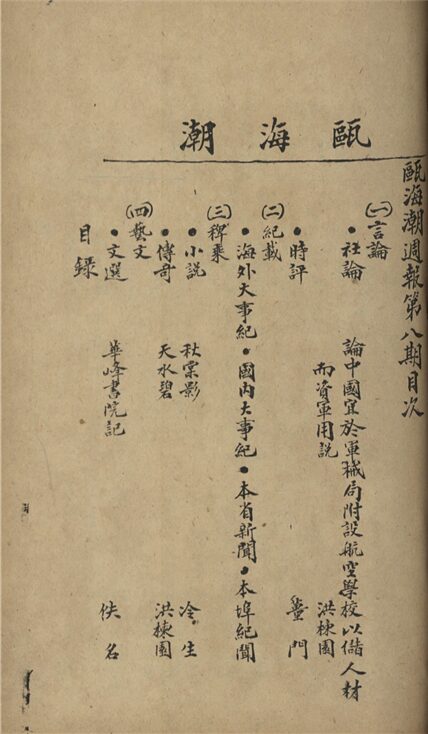 甌海潮
甌海潮週報第八期目次
(一)言論
●社論 論中國宜於軍械局附設航空學校以儲人材
而資軍用說 洪楝園
●時評 門
(二)紀載
●海外大事紀●國內大事紀●本省新聞●本埠紀聞
(三)稗乘
●小說 秋棠影 冷生
●傳奇 天水碧 洪楝園
(四)藝文
●文選 華峰書院記 佚名
目錄